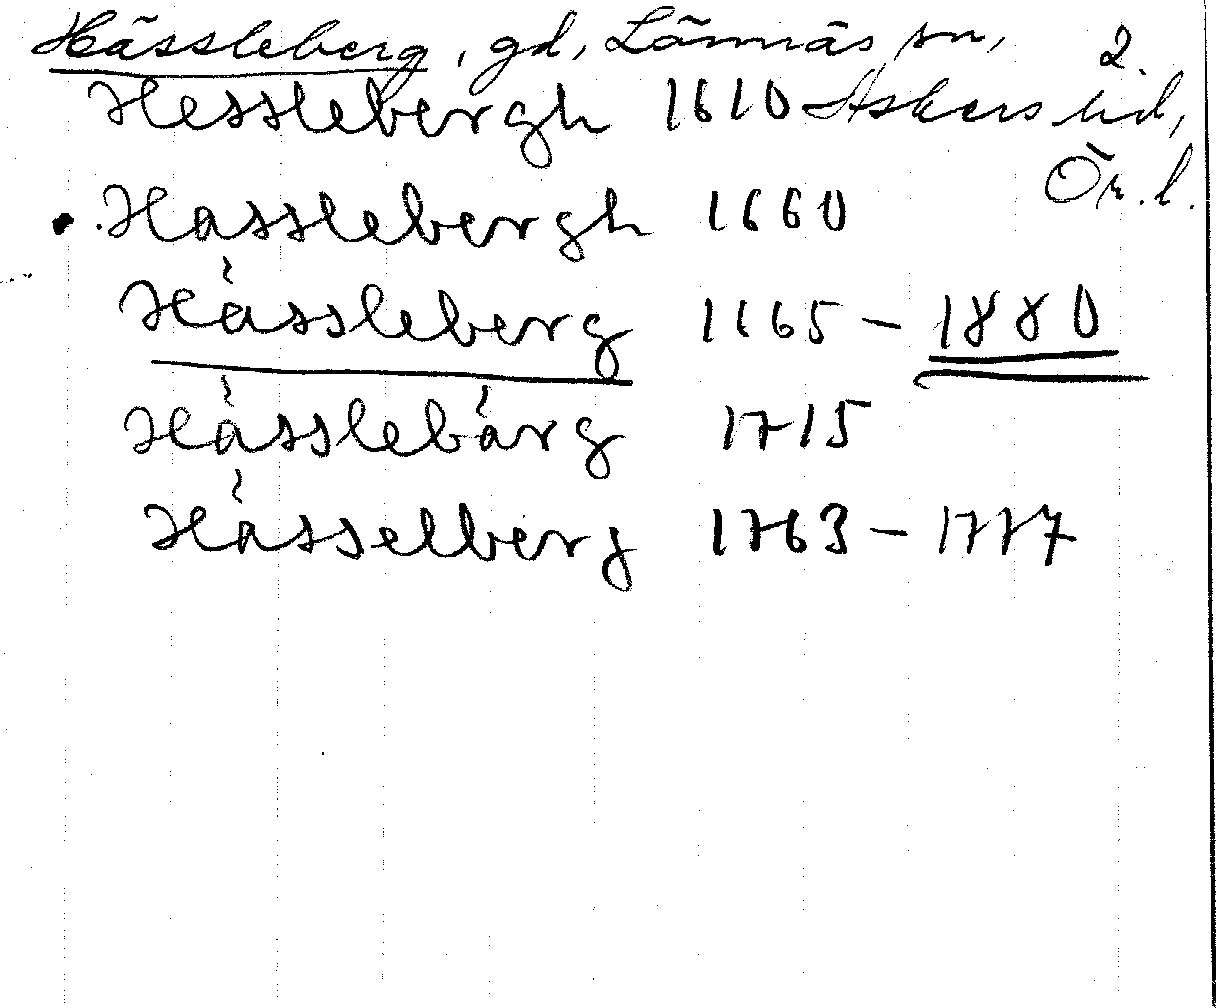 Hässleberg, gd, Lännäs sn, 2.
Hesslebergh 1610 Askers hd,
Ör. l.
Hasslebergh 1660
Hässleberg 1665 - 1880
Hässlebärg 1715
Hässelberg 1763 - 1777